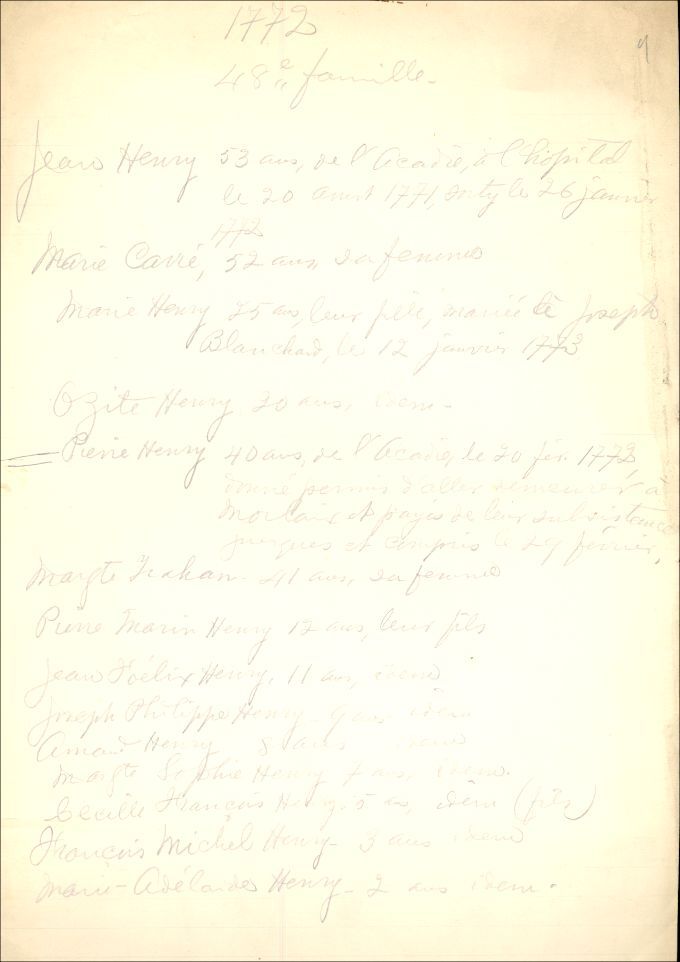 1772
48e famille.
Jean Henry 53 ans, de l'Acadie, à l'hôpital
le 20 aout 1771, sorty le 26 janvier
1772
Marie Carré, 52 ans, sa femme
Marie Henry 25 ans, leur fille, mariée à Joseph
Blanchard, le 12 janvier 1773
Ozite Henry 20 ans, idem.
Pierre Henry 40 ans, de l'Acadie, le 20 fév. 1772,
donné permis d'aller demeurer à
Morlaix et payés de leur subsistance
jusques et compris le 29 février.
Margte Trahan 41 ans, sa femme
Pierre Marin Henry 12 ans, leur fils
Jean Félix Henry, 11 ans, idem
Joseph Philippe Henry 9 ans idem
Amand Henry 8 ans idem
Margte Sophie Henry 7 ans, idem.
Cecille François Henry 5 ans, idem (fils)
François Michel Henry - 3 ans idem
Marie-Adélaïde Henry - 2 ans idem.